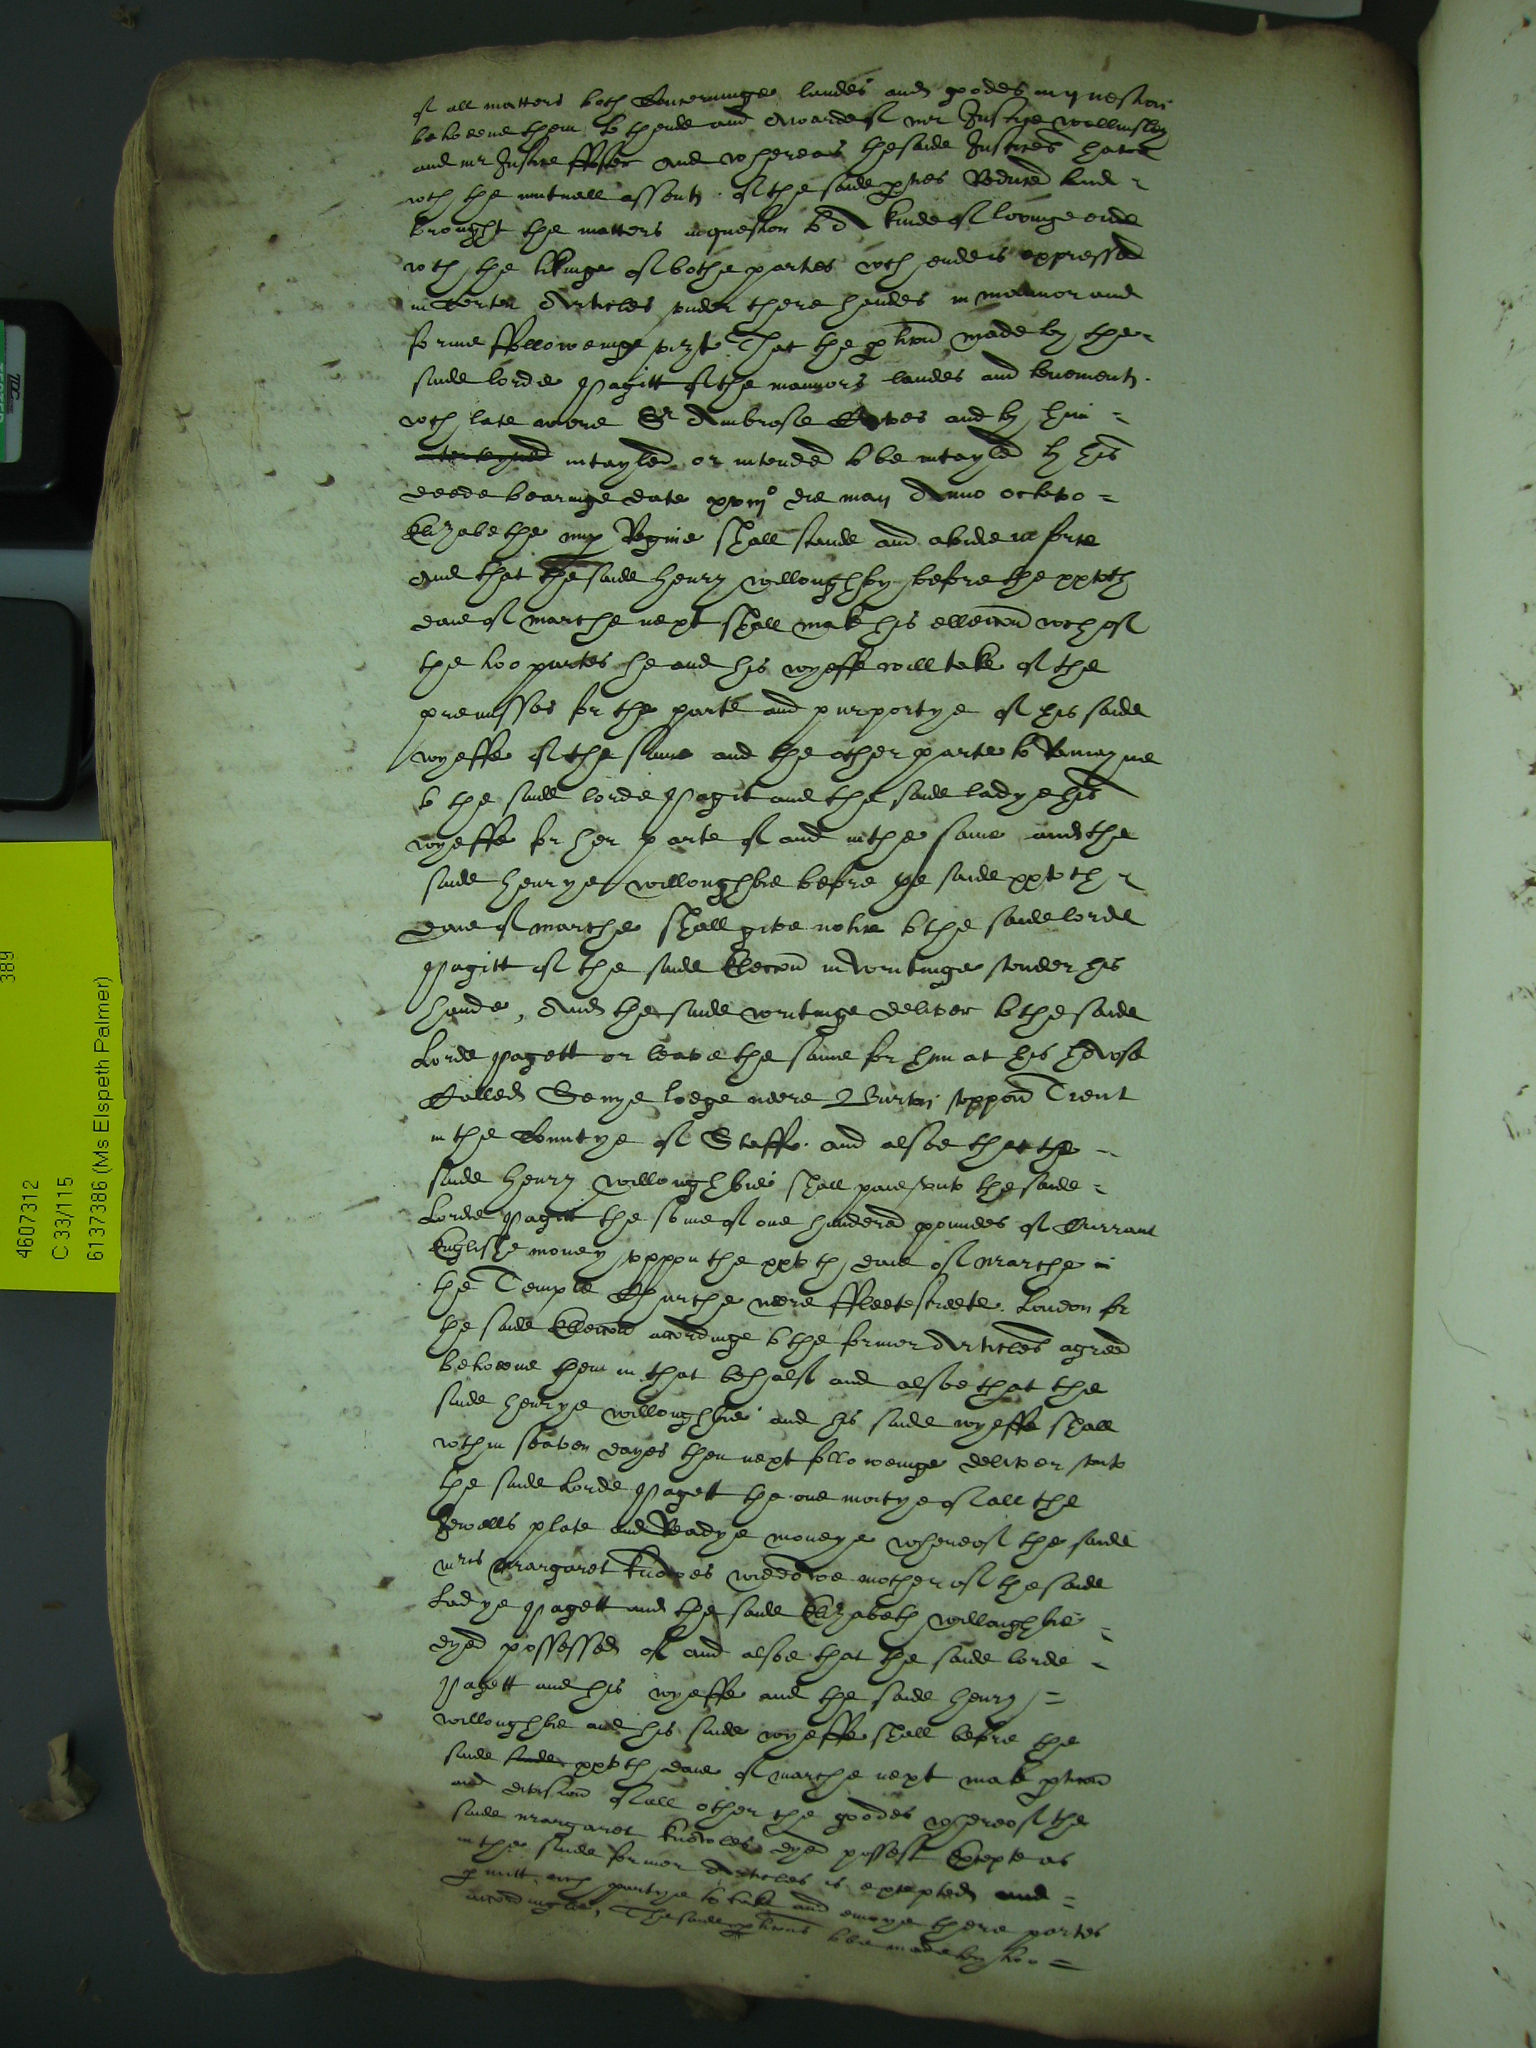 of all matters both Concerninge landes and goodes in question
betweene them to thende and Awarde of mr Justice Wallmsley
and mr Justice ffoster And whereas the saide Justices have
wth the mutuall assent of the saide pties Reduced and
brought the matters in question to A kinde of lovinge ende
wth the likinge of bothe partes wch ende is expressed
in Certen Articles vnder there handes in mannor and
forme ffollowinge vizt That the pticon made by the
saide lorde Pagitt of the mannors landes and tenements
wch late were Sr Ambrose Caves and by him
intayled or intended to be intayled by his
deede bearinge date xviijo die maij Anno octavo
Elizabethe nup Regine shall stande and abide in force
And that the saide Henry Willoughby before the xxvth
daie of marche next shall make his ellecon wch of
the too partes he and his wyeffe will take of the
premisses for the parte and purportye of his saide
wyeffe of the same and the other parte to Remayne
to the saide lorde Pagit and the saide ladye his
wyeffe for her parte of and in the same and the
saide Henrye Willoughbie before the saide xxvth
daie of marche shall give notice to the saide lorde
Pagitt of the saide Eleccon in writinge vnder his
hande, And the saide writinge deliver to the saide
Lorde Pagett or leave the same for him at his howse
Called Senye lodge neere Burton vppon Trent
in the Countye of Staff. and alsoe that the
saide Henry Willoughbie shall paie vnto the saide
Lorde Pagitt the some of one hundered poundes of Currant
Englishe money vpppon the xxvth daie of Marche in
the Temple Churche neere ffleetestreete London for
the saide Elleccon accordinge to the former Articles agreed
betweene them in that behalf and alsoe that the
saide Henrye Willoughbie and his saide wyeffe shall
wthin seaven dayes then next followeinge deliver vnto
the saide Lorde Pagett the one moitye of all the
Jewells plate and Readye moneye whereof the saide
mris Margaret Knowles widdowe mother of the saide
Ladye Pagett and the saide Elizabeth Willoughbie
dyed possessed of and alsoe that the saide lorde
Pagett and his wyeffe and the saide Henry
Willoughbie and his saide wyeffe shall before the
saide saide xxvth daie of marche next make pticon
and division of all other the goodes whereof the
saide Margaret Knowles dyed possest Excepte as
in the saide former Articles is excepted and
pmitt eich partye to take and enioye there partes
accordinglie, The saide pticons to be made by too
4607312
C 33/115
6137386 (Ms Elspeth Palmer)
389